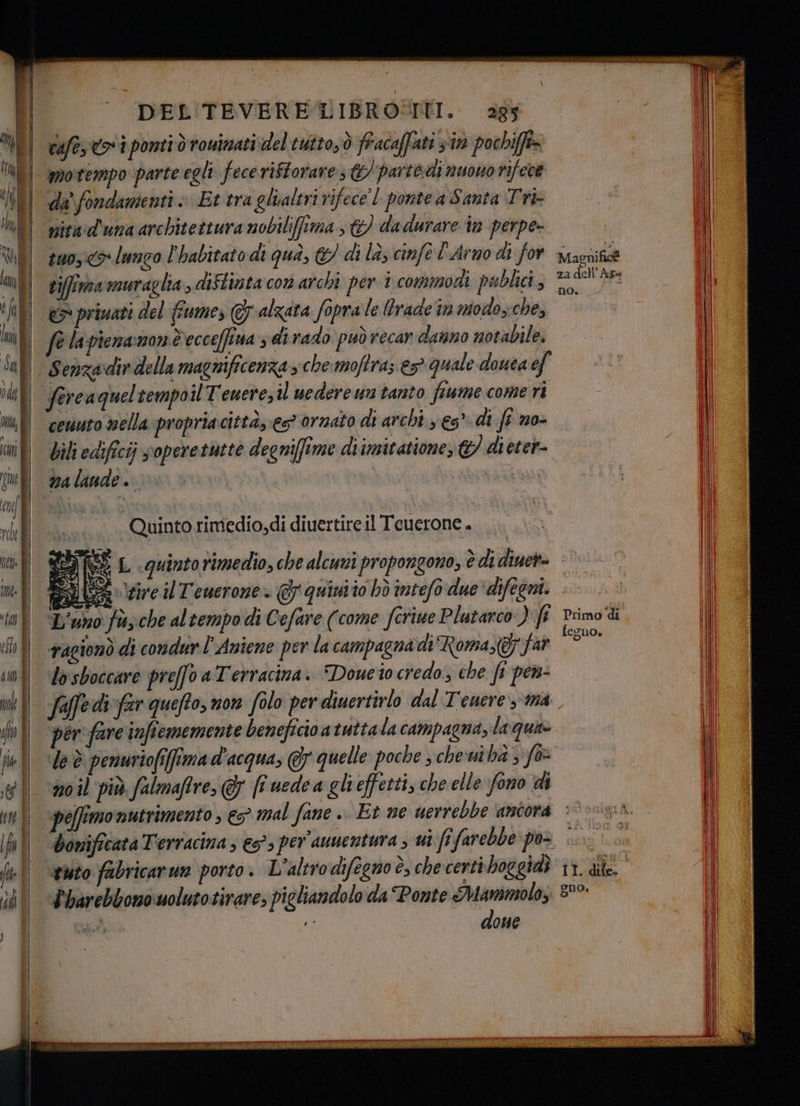 DEL TEVERE LIBRO III. 285
case, & i ponti ò rouinati del tutto, ò fracassati, in pochissi-
mo tempo parte egli fece ristorare, & parte di nuouo rifece
da' fondamenti. Et tra gli altri rifece'l ponte a Santa Tri-
nita d'una architettura nobilissima, & da durare in perpe-
tuo, & lungo l'habitato di quà, & di là, cinse l'Arno di for
tissima muraglia, distinta con archi per i commodi publici,
& priuati del fiume, & alzata sopra le strade in modo, che,
se la piena non è eccessiua, di rado può recar danno notabile.
Senza dir della magnificenza, che mostra; & quale douea es
sere a quel tempo il Teuere, il uedere un tanto fiume come ri
ceuuto nella propria città, & ornato di archi, & di si no-
bili edificij, opere tutte degnissime di imitatione, & di eter-
na laude.
Magnificẽ
za dell' Ar-
no.
Quinto rimedio, di diuertire il Teuerone.
IL quinto rimedio, che alcuni propongono, è di diuer-
tire il Teuerone. & quiui io hò inteso due disegni.
L'uno fù, che al tempo di Cesare (come scriue Plutarco) si
ragionò di condur l'Aniene per la campagna di Roma, & far
lo sboccare presso a Terracina. Doue io credo, che si pen-
sasse di far questo, non solo per diuertirlo dal Teuere, ma
per fare insiememente beneficio a tutta la campagna, la qua-
le è penuriosissima d'acqua, & quelle poche, che ui hà, so-
no il più salmastre, & si uede a gli effetti, che elle sono di
pessimo nutrimento, & mal sane. Et ne uerrebbe ancora
bonificata Terracina, &, per auuentura, ui si farebbe po-
tuto fabricar un porto. L'altro disegno è, che certi hoggidì
l'harebbono uoluto tirare, pigliandolo da Ponte Mammolo,
Primo di
segno.
11. dise-
gno.
doue